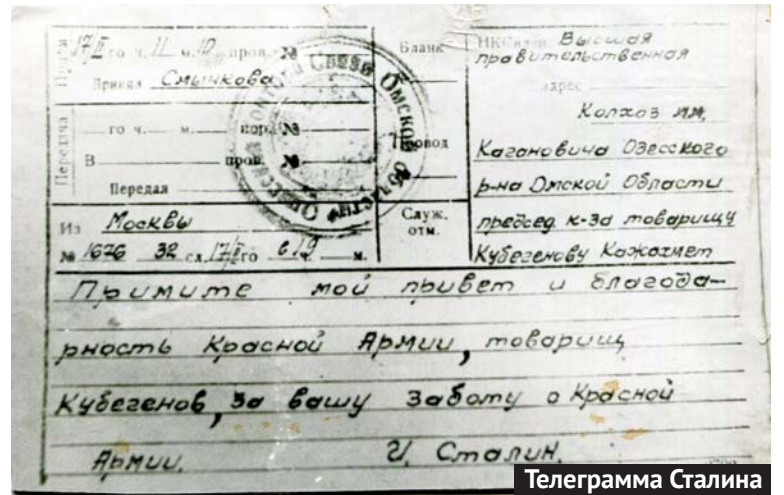 17/II го ч. 11 м. 10 пров. №
Принял Смычкова
Передача
го ч. м. пор. №
В пров. №
Передал
Из Москвы
№ 1676 32 сл. 17/II го 6 19 м.
Бланк
Провод
Служ. отм.
Высшая
правительственная
адрес
Колхоз им.
Кагановича Одесского
р-на Омской Области
председ к-за товарищу
Кубегенову Кажахмет
Примите мой привет и благода-
рность Красной Армии, товарищ
Кубегенов, за вашу заботу о Красной
Армии. И. Сталин.
Телеграмма Сталина